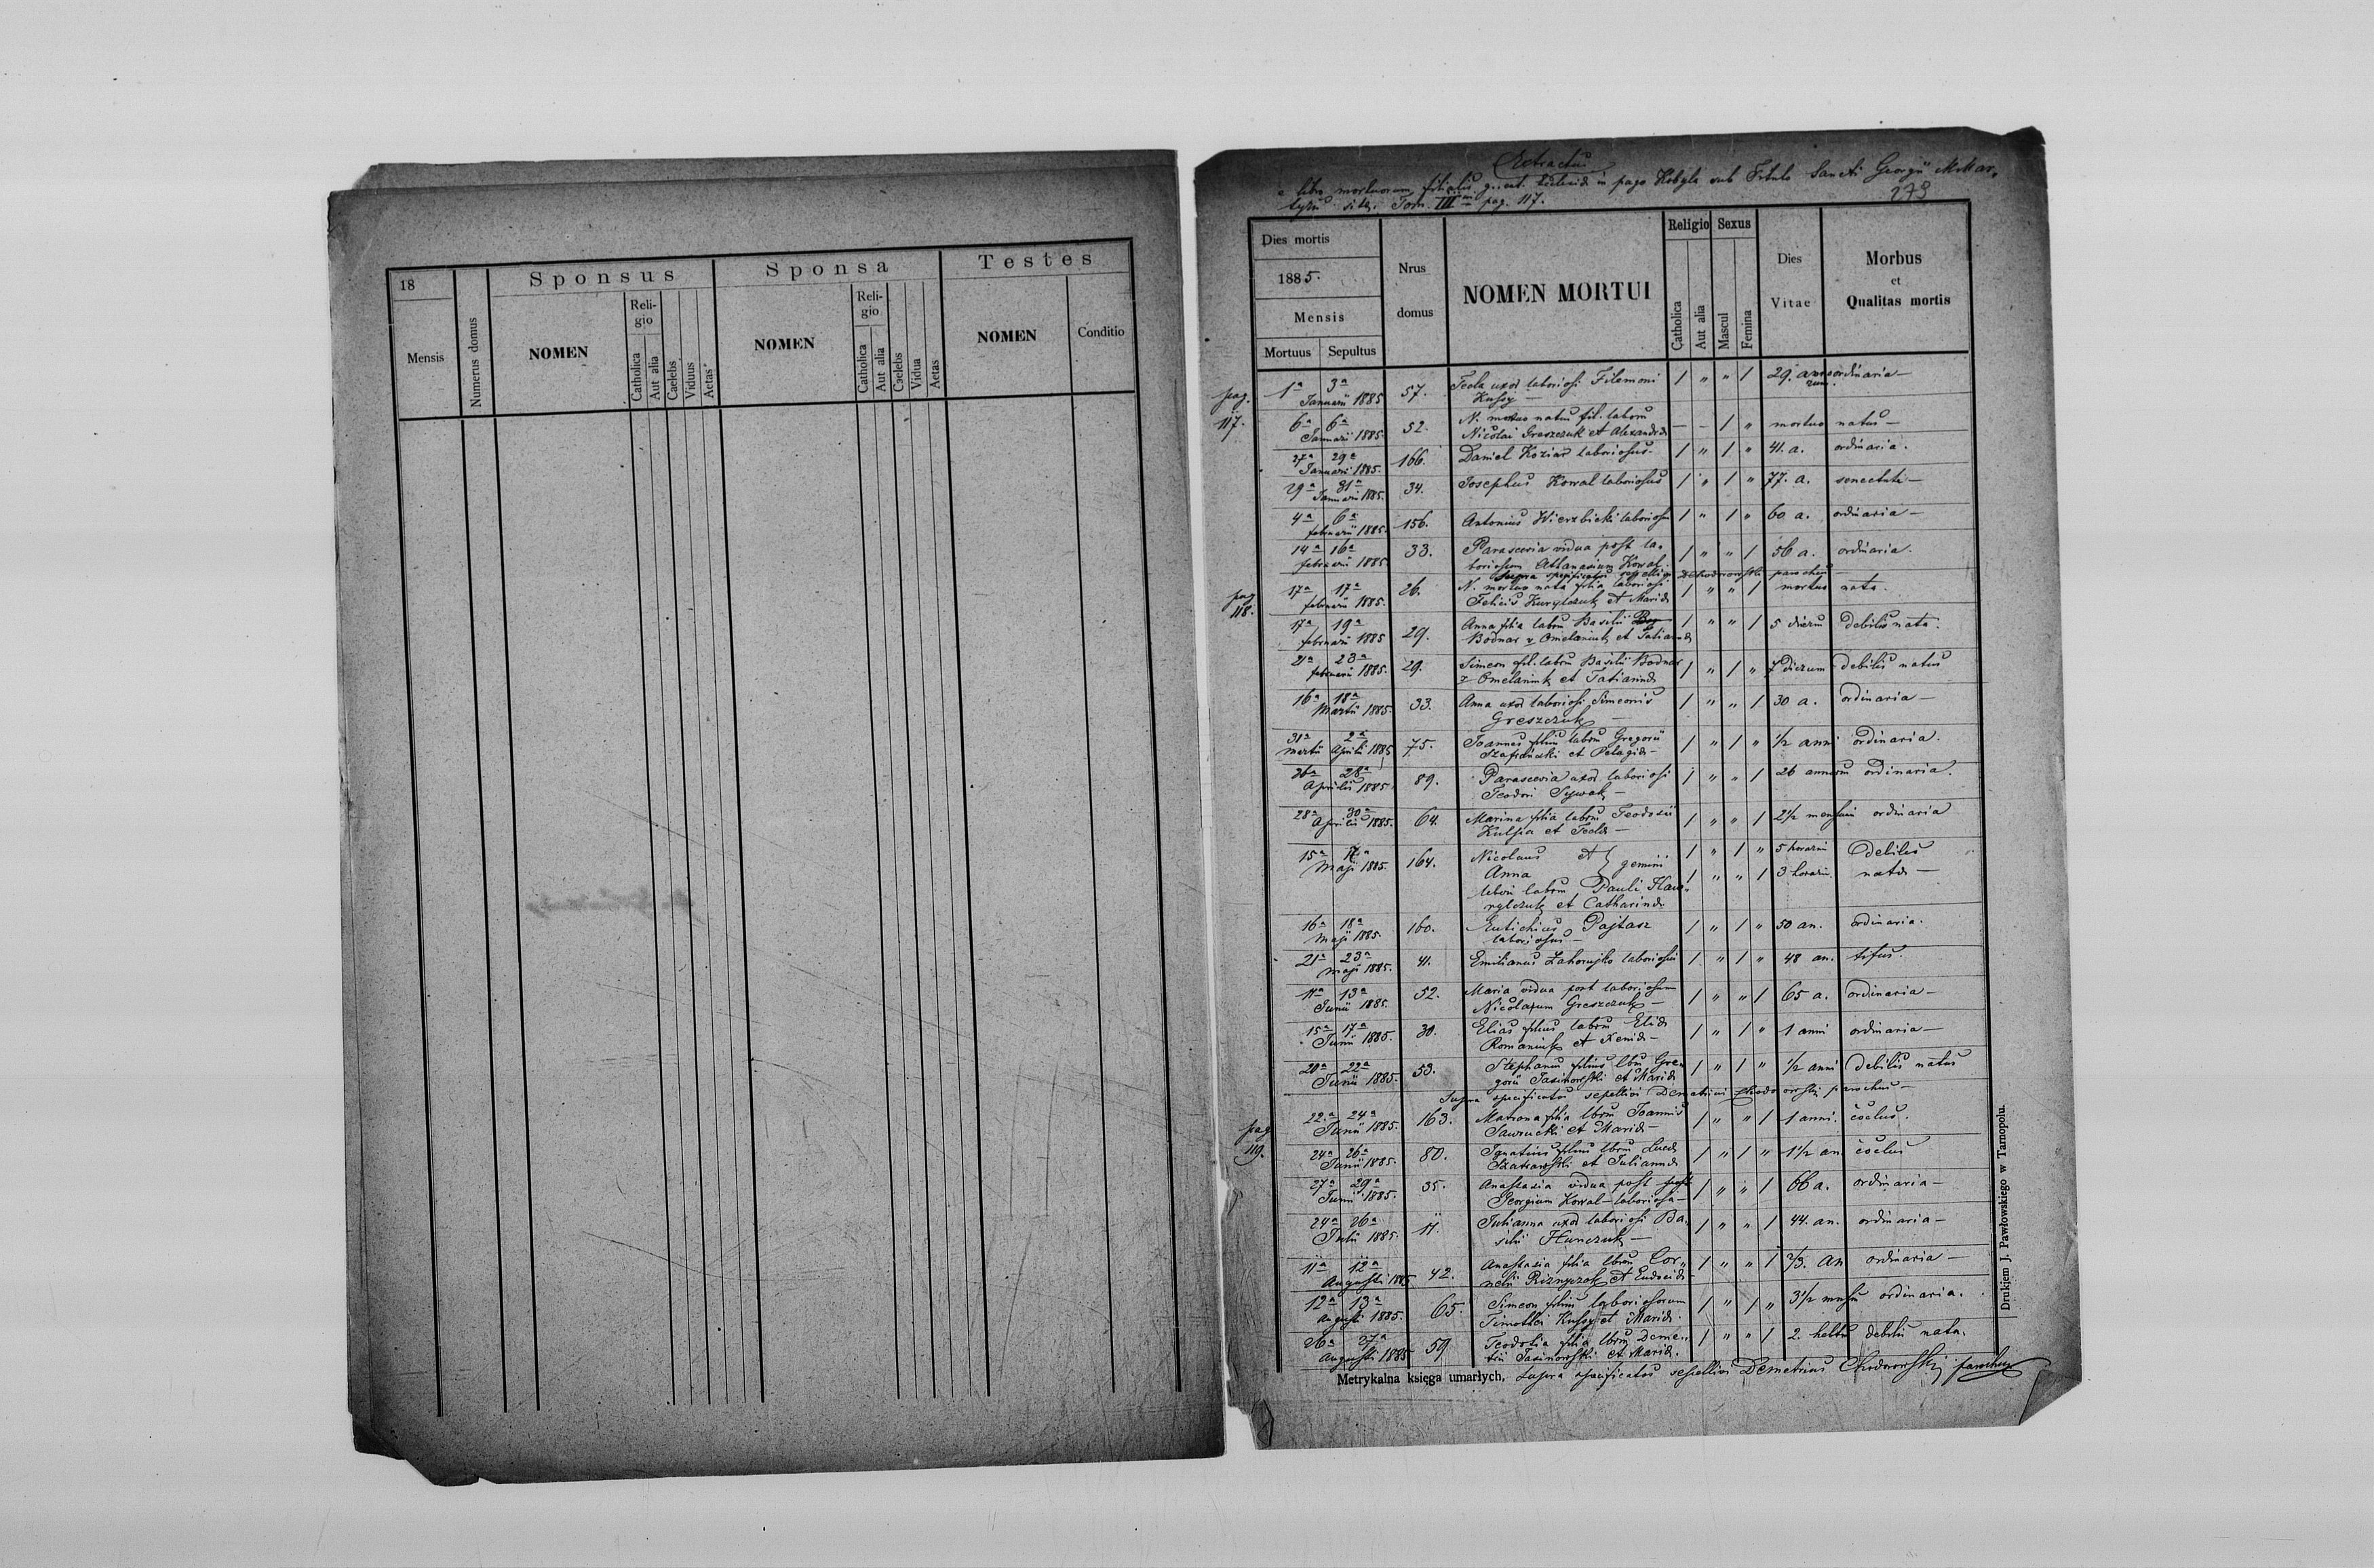 18
Mensis
Numerus domus
Sponsus
NOMEN
Reli-
gio
Catholica
Aut alia
Caelebs
Viduus
Aetas
Sponsa
NOMEN
Reli-
gio
Catholica
Aut alia
Caelebs
Vidua
Aetas
Testes
NOMEN
Conditio
Extractus
e libro mortuorum filialis g. cat. in pago Kobyla sub Titulo Sancti Georgii M. Mar,
tyris Tom. III pag. 117.
279
Dies mortis
1885.
Mensis
Mortuus Sepultus
Nrus
domus
NOMEN MORTUI
Religio
Catholica
Aut alia
Sexus
Mascul
Femina
Dies
Vitae
Morbus
et
Qualitas mortis
pag.
117.
1a 3a 57. Tecla uxor laboriosi Filemoni 1 " " 1 29. ordinaria —
Januarii 1885 Kussy —
6a 6a 52. N. mortuo natus fil. laboru — — 1 " mortuo natus —
Januarii 1885. Nicolai Greszczuk et Alexandra
27a 29a 166. Daniel Koziar laboriosus. 1 " 1 " 41. a. ordinaria.
Januarii 1885.
29a 31a 34. Josephus Kowal laboriosus 1 " 1 " 77. a. senectute —
Januarii 1885.
4a 6a 156. Antonius Wierzbicki laboriosus 1 " 1 " 60 a. ordinaria —
februarii 1885.
14a 16a 33. Parascevia vidua post la- 1 " " 1 56 a. ordinaria.
februarii 1885 boriosum Athanasium Kowal.
Supra specificatos sepellivi Chodorowski parochus
pag
118.
17a 17a 26. N. mortuo nata filia laboriosi 1 " " 1 mortuo nata.
februarii 1885. Felicis Kurylczuk et Maria
17a 19a 29. Anna filia laboru Basilii 1 " " 1 5 dierum debilis nata.
februarii 1885 Bodnar v. Omelaniuk et Tatianna
21a 23a 29. Simeon fil. laboru Basilii Bodnar 1 " 1 " 7 dierum debilis natus
februarii 1885. v. Omelaniuk et Tatianna
16a 18a 33. Anna uxor laboriosi Simeonis 1 " " 1 30 a. ordinaria —
Martii 1885. Greszczuk —
31a 2a 75. Joannes filius laboru Gregorii 1 " 1 " 1/2 anni ordinaria.
martii Aprili 1885 Szafrański et Pelagia —
26a 28a 89. Parascevia uxor laboriosi 1 " " 1 26 annoru ordinaria.
Aprilis 1885 Teodori Sywak —
28a 30a 64. Marina filia laboru Teodosii 1 " " 1 2 1/2 mensium ordinaria
Aprilis 1885. Kulpa et Tecla —
15a 17a 164. Nicolaus et } gemini 1 " 1 " 5 horarum debiles
Maji 1885. Anna 1 " " 1 3 horarum nata —
laboru Pauli Haw-
rylczuk et Catharina
16a 18a 160. Eutichius Pajtasz 1 " 1 " 50 an. ordinaria.
Maji 1885. laboriosus —
21a 23a 41. Emilianus Zahorujko laboriosus 1 " 1 " 48 an. tifus.
Maji 1885.
11a 13a 52. Maria vidua post laboriosum 1 " " 1 65 a. ordinaria —
Junii 1885. Nicolaum Greszczuk —
15a 17a 30. Elias filius laboru Elia 1 " 1 " 1 anni ordinaria —
Junii 1885. Romaniuk et Xenia —
20a 22a 53. Stephanus filius lbru Gre- 1 " 1 " 1/2 anni debilis natus
Junii 1885. gorii Jasinowski et Maria
Supra specificatos sepellivi Demetrius Chodorowski parochus —
pag
119.
22a 24a 163. Matrona filia lbru Joannis 1 " " 1 1 anni. coclus.
Junii 1885. Sawrucki et Maria —
24a 26a 80. Ignatius filius lbru Luca 1 " 1 " 1 1/2 an coclus
Junii 1885. Szatkowski et Julianna
27a 29a 35. Anastasia vidua post 1 " " 1 66 a. ordinaria —
Junii 1885. Georgium Kowal — laboriosa —
24a 26a 11. Julianna uxor laboriosi Ba- 1 " " 1 44. an. ordinaria —
Julii 1885. silii Hunczuk —
11a 12a 42. Anastasia filia lbru Cor- 1 " " 1 2/3. an ordinaria —
Augusti 1885 nelii Riznyczok et Eudocia
12a 13a 65. Simeon filius laboriosorum 1 " 1 " 3 1/2 ordinaria.
Augusti 1885. Timothei Kussy et Maria.
26a 27a 59. Teodosia filia lbru Deme- 1 " " 1 2. debilis nata.
Augusti 1885 trii Jasinowski et Maria.
Metrykalna księga umarłych. Supra specificatos sepellivi Demetrius Chodorowski parochus
Drukiem J. Pawłowskiego w Tarnopolu.